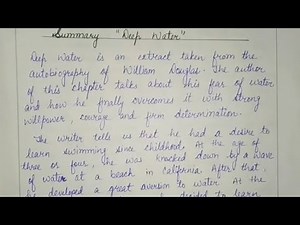 Summary "Deep Water"
Deep Water is an extract taken from the
autobiography of William Douglas. The author
of this chapter talks about this fear of water
and how he finally overcomes it with strong
willpower, courage and firm determination.
The writer tells us that he had a desire to
learn swimming since childhood. At the age of
three or four, he was knocked down by a wave
of water at a beach in California. After that,
he developed a great aversion to water. At the
decided to learn